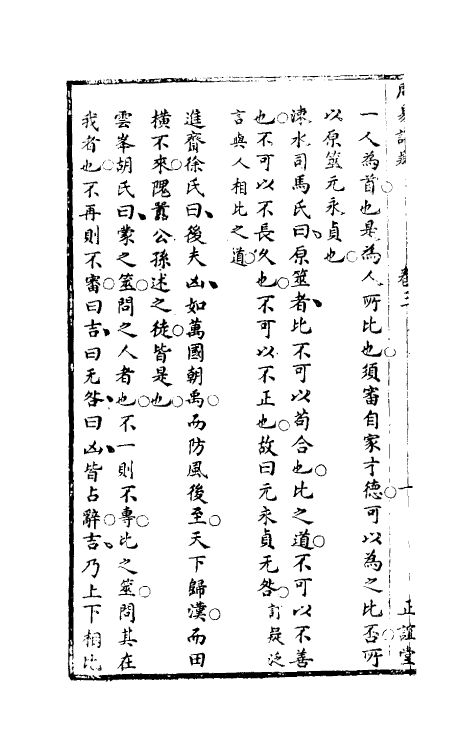 周易訂疑 卷三 一 正誼堂
一人為首也是為人所比也須審自家才德可以為之比否所
以原筮元永貞也
涑水司馬氏曰原筮者比不可以苟合也比之道不可以不善
也不可以不長久也不可以不正也故曰元永貞无咎訂疑泛
言與人相比之道
進齋徐氏曰後夫凶如萬國朝禹而防風後至天下歸漢而田
橫不來隗囂公孫述之徒皆是也
雲峯胡氏曰蒙之筮問之人者也不一則不專比之筮問其在
我者也不再則不審曰吉曰无咎曰凶皆占辭吉乃上下相比